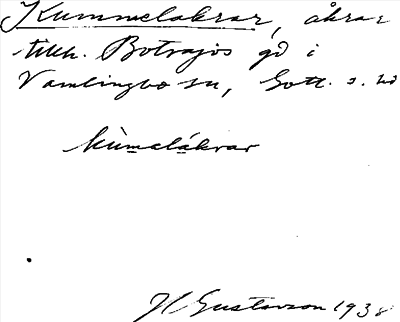 Kummelåkrar, åkrar
tillh. Botvajös gd i
Vamlingbo sn, Gotl. s. hd
kùmalákrar
H Gustavson 1938